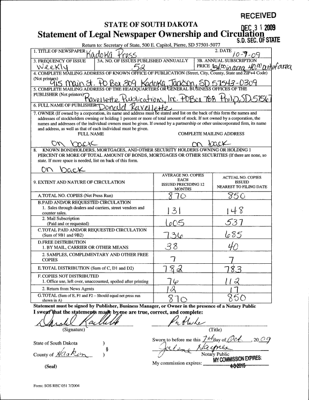 RECEIVED
DEC 31 2009
S.D. SEC. OF STATE
STATE OF SOUTH DAKOTA
Statement of Legal Newspaper Ownership and Circulation
Return to: Secretary of State, 500 E. Capitol, Pierre, SD 57501-5077
1. TITLE OF NEWSPAPER Kadoka Press
2. DATE 10-9-09
3. FREQUENCY OF ISSUE weekly
3A. NO. OF ISSUES PUBLISHED ANNUALLY 52
3B. ANNUAL SUBSCRIPTION PRICE
4. COMPLETE MAILING ADDRESS OF KNOWN OFFICE OF PUBLICATION (Street, City, County, State and ZIP+4 Code) (Not printer)
915 Main St. PO Box 309 Kadoka, Jackson, SD 57543-0309
5. COMPLETE MAILING ADDRESS OF THE HEADQUARTERS OR GENERAL BUSINESS OFFICES OF THE PUBLISHER (Not printer)
Ravellette Publications, Inc. PO Box 788 Philip, SD 57567
6. FULL NAME OF PUBLISHER: Donald Ravellette
7. OWNER (If owned by a corporation, its name and address must be stated and list on the back of this form the names and
addresses of stockholders owning or holding 1 percent or more of total amount of stock. If not owned by a corporation, the
names and addresses of the individual owners must be given. If owned by a partnership or other unincorporated firm, its name
and address, as well as that of each individual must be given.
FULL NAME COMPLETE MAILING ADDRESS
on back on back
8. KNOWN BONDHOLDERS, MORTGAGEES, AND OTHER SECURITY HOLDERS OWNING OR HOLDING 1
PERCENT OR MORE OF TOTAL AMOUNT OF BONDS, MORTGAGES OR OTHER SECURITIES (If there are none, so
state. If more space is needed, list on back of this form.
on back
9. EXTENT AND NATURE OF CIRCULATION
AVERAGE NO. COPIES EACH ISSUED PRECEDING 12 MONTHS
ACTUAL NO. COPIES ISSUED NEAREST TO FILING DATE
A. TOTAL NO. COPIES (Net Press Run) 870 850
B. PAID AND/OR REQUESTED CIRCULATION
1. Sales through dealers and carriers, street vendors and counter sales. 131 148
2. Mail Subscription (Paid and or requested) 605 537
C. TOTAL PAID AND/OR REQUESTED CIRCULATION (Sum of 9B1 and 9B2) 736 685
D. FREE DISTRIBUTION
1. BY MAIL, CARRIER OR OTHER MEANS 38 40
2. SAMPLES, COMPLIMENTARY AND OTHER FREE COPIES 7 7
E. TOTAL DISTRIBUTION (Sum of C, D1 and D2) 782 783
F. COPIES NOT DISTRIBUTED
1. Office use, left over, unaccounted, spoiled after printing 76 112
2. Return from News Agents 12 17
G. TOTAL (Sum of E, F1 and F2 - Should equal net press run shown in A) 870 850
Statement must be signed by Publisher, Business Manager, or Owner in the presence of a Notary Public
I swear that the statements made by me are true, correct, and complete:
(Signature) (Title)
State of South Dakota )
County of )
(Seal)
Sworn to before me this 7th day of Oct, 2009
Notary Public
My commission expires: MY COMMISSION EXPIRES
Form: SOS REC 051 7/2004